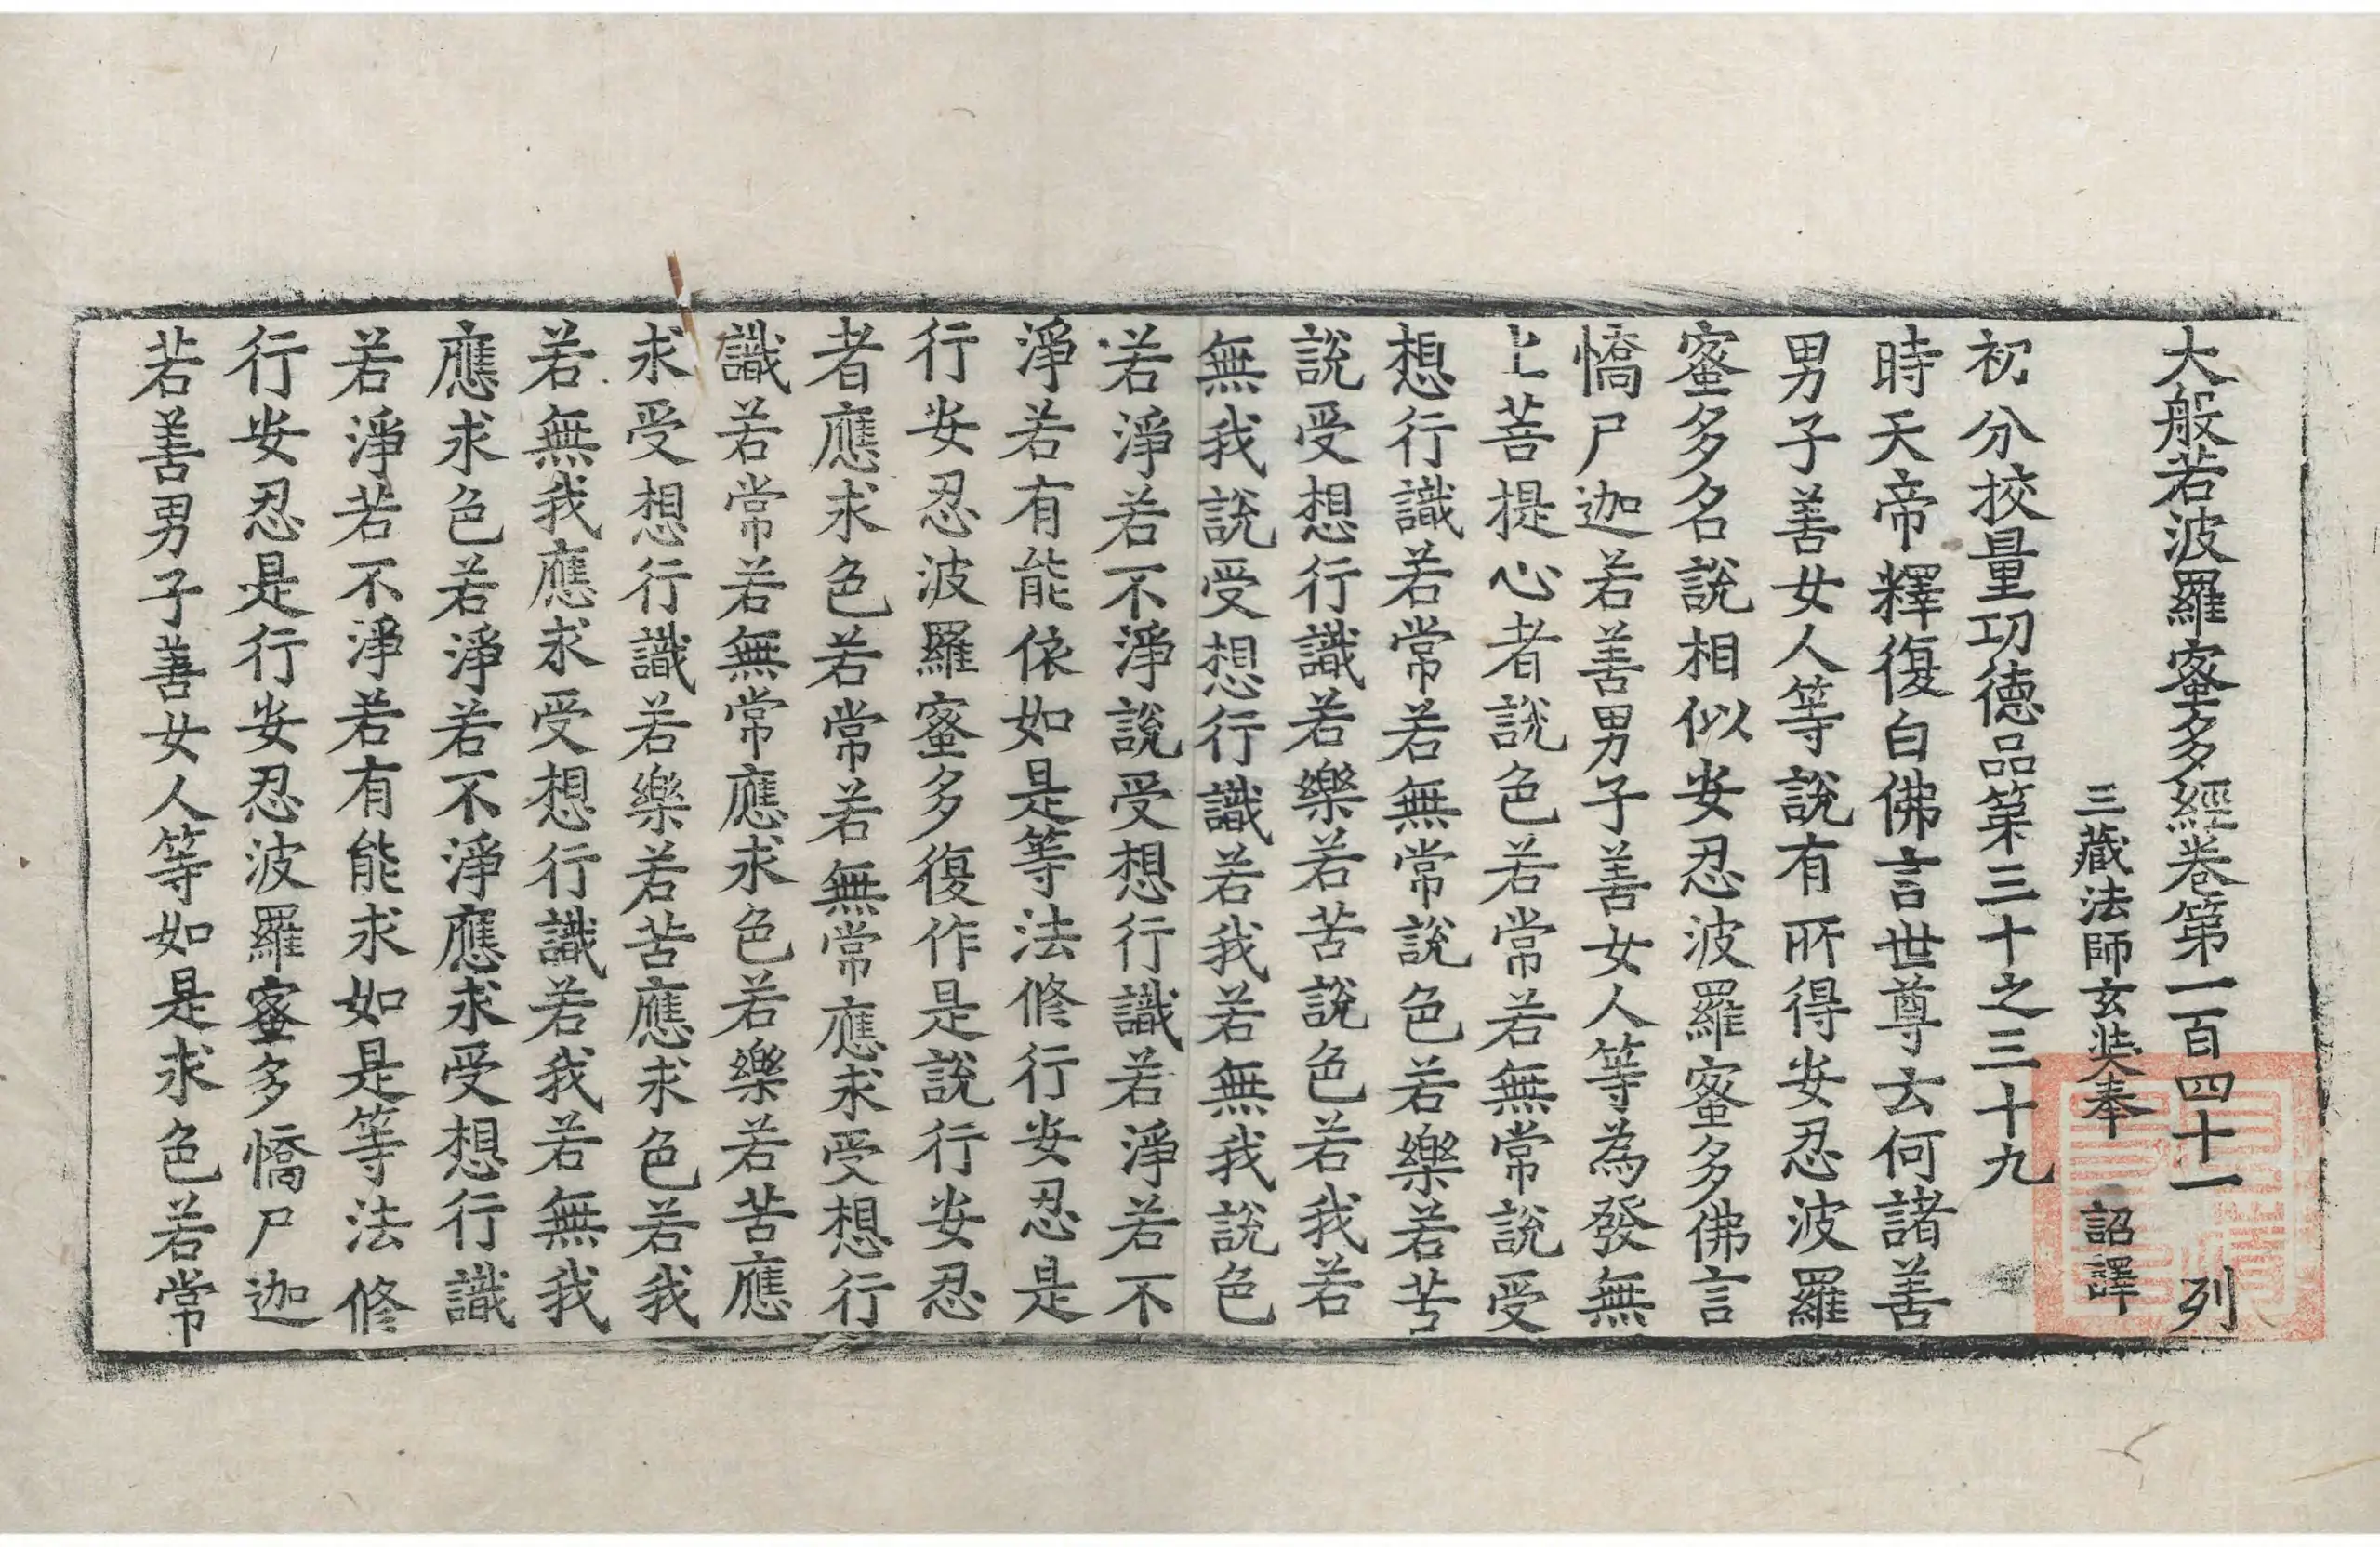 大般若波羅蜜多經卷第一百四十一 列
三藏法師玄奘奉 詔譯
初分挍量功德品第三十之三十九
時天帝釋復白佛言世尊云何諸善
男子善女人等說有所得安忍波羅
蜜多名說相似安忍波羅蜜多佛言
憍尸迦若善男子善女人等為發無
上菩提心者說色若常若無常說受
想行識若常若無常說色若樂若苦
說受想行識若樂若苦說色若我若
無我說受想行識若我若無我說色
若淨若不淨說受想行識若淨若不
淨若有能依如是等法修行安忍是
行安忍波羅蜜多復作是說行安忍
者應求色若常若無常應求受想行
識若常若無常應求色若樂若苦應
求受想行識若樂若苦應求色若我
若無我應求受想行識若我若無我
應求色若淨若不淨應求受想行識
若淨若不淨若有能求如是等法修
行安忍是行安忍波羅蜜多憍尸迦
若善男子善女人等如是求色若常